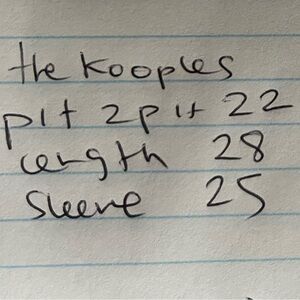 the Kooples
pit 2 pit 22
length 28
sleeve 25